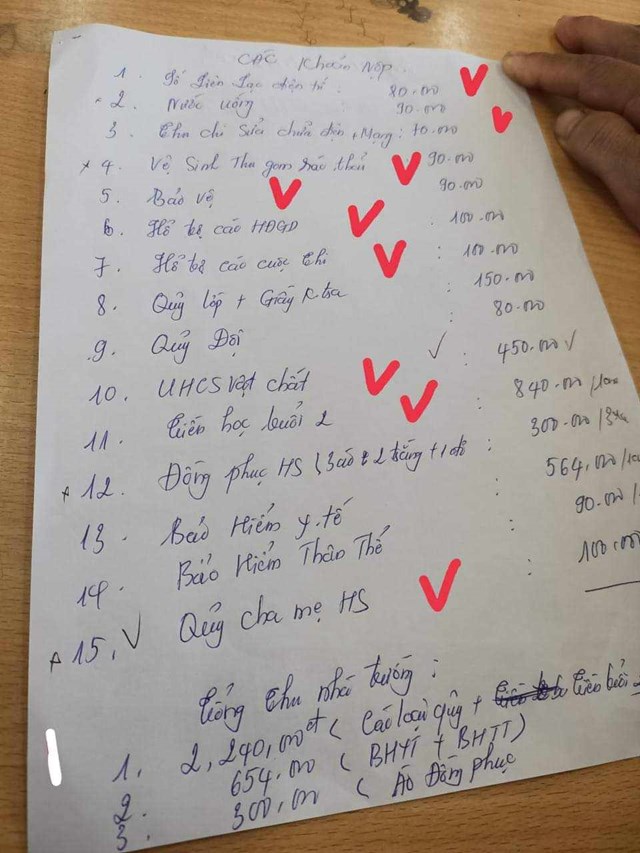 CÁC Khoản Nộp
1. Sổ Liên Lạc điện tử : 80.000
2. Nước uống 90.000
3. Thu chi Sửa chữa điện + Mạng : 70.000
* 4. Vệ Sinh Thu gom rác thải 90.000
5. Bảo vệ 90.000
6. Hổ trợ các HĐGD : 100.000
7. Hổ trợ các cuộc thi : 100.000
8. Quỹ lớp + Giấy K.tra : 150.000
9. Quỹ Đội : 80.000
10. UHCS vật chất √ : 450.000 √
11. Tiền học buổi 2 : 840.000 /
12. Đồng phục HS (3 áo : 2 trắng + 1 đỏ : 300.000 / 3
13. Bảo Hiểm y.tế : 564.000 /
14. Bảo Hiểm Thân Thể : 90.000 /
15. √ Quỹ cha mẹ HS : 100.000
Tổng Thu nhà trường :
1. 2,240,000đ ( Các loại quỹ + Tiền buổi 2
2. 654.000 ( BHYT + BHTT )
3. 300.000 ( Áo Đồng phục